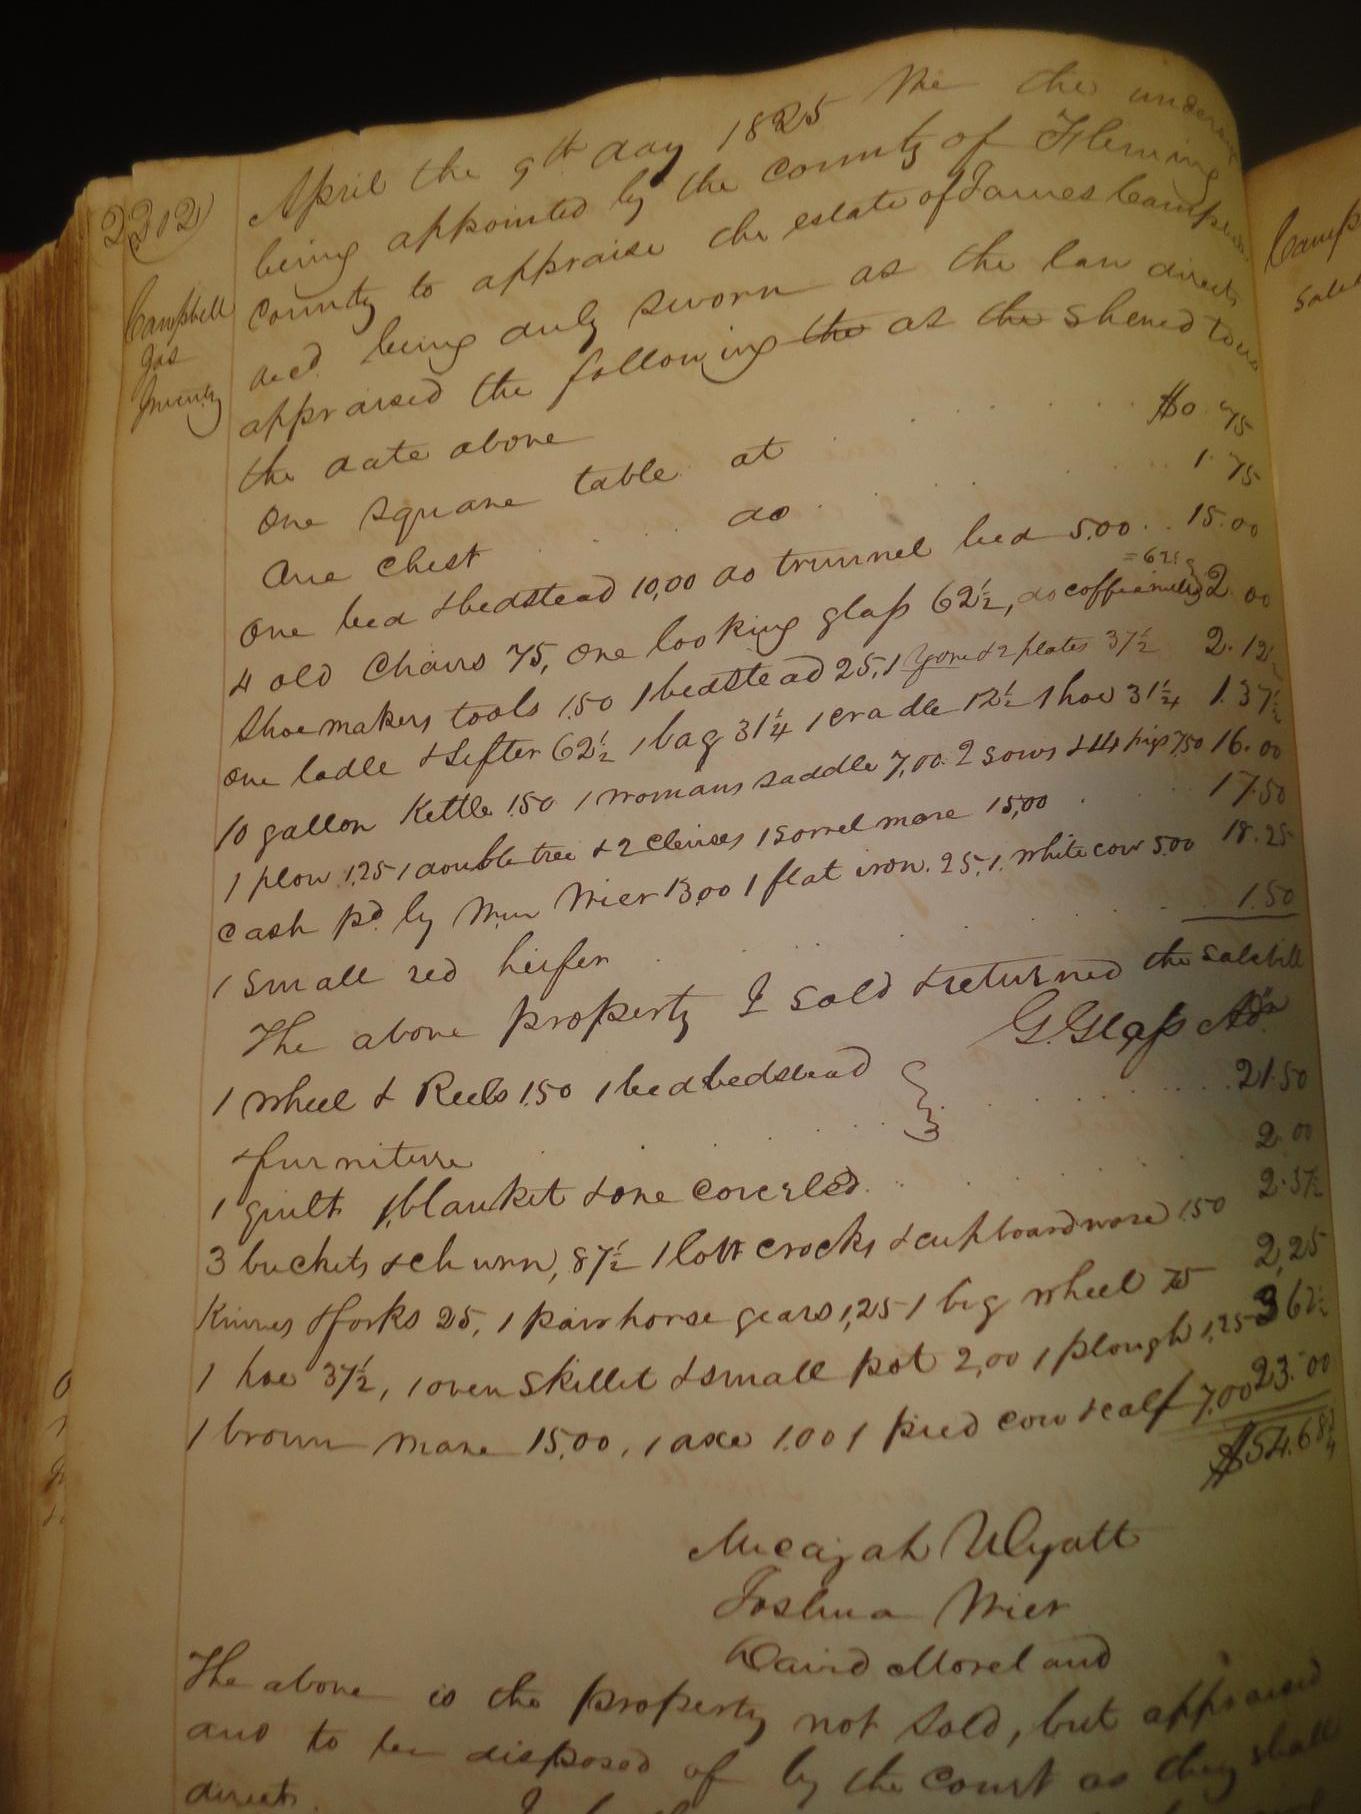 2202)
Campbell
Jas
Inventy
April the 9th day 1825 We the
being appointed by the county of Fleming
county to appraise the estate of James Campbell
decd. being duly sworn as the law directs
appraised the following the at the shewed to us
the date above
One square table at $0 75
One chest do 1. 75
One bed & bedstead 10,00 do trunnel bed 5.00 15.00
4 old Chairs 75, one looking glass 62½, do coffee mill =62½ 2 00
Shoemakers tools 1.50 1 bedstead 25, 1 & 2 plates 37½ 2.12½
One ladle & Sifter 62½ 1 bag 31¼ 1 cradle 12½ 1 hoe 31¼ 1.37½
10 gallon Kettle 1.50 1 womans saddle 7,00 2 sows & 14 pigs 7.50 16.00
1 plow 1.25 1 doubletree & 2 clevises 1 sorrel mare 15,00 17.50
Cash pd. by Wm Wier 13,00 1 flat iron .25, 1 white cow 5.00 18.25
1 small red heifer 1.50
The above property I sold & returned the salebill
G. Glass Adr
1 wheel & Reels 1.50 1 bed bedstead
& furniture 21.50
1 quilt 1 blanket & one coverled 2.00
3 buckets & churn, 87½ 1 lott crocks & cupboardware 1.50 2.37½
Knives & forks 25, 1 pair horse gears 1,25 1 big wheel 75 2,25
1 hoe 37½, 1 oven skillet & small pot 2,00 1 plough 1,25 3 62½
1 brown mare 15,00, 1 axe 1.00 1 pied cow & calf 7.00 23.00
$54.68¾
Micajah Wyatt
Joshua Wier
David Moreland
The above is the property not sold, but appraised
and to be disposed of by the court as they shall
direct.
Campb
Sale